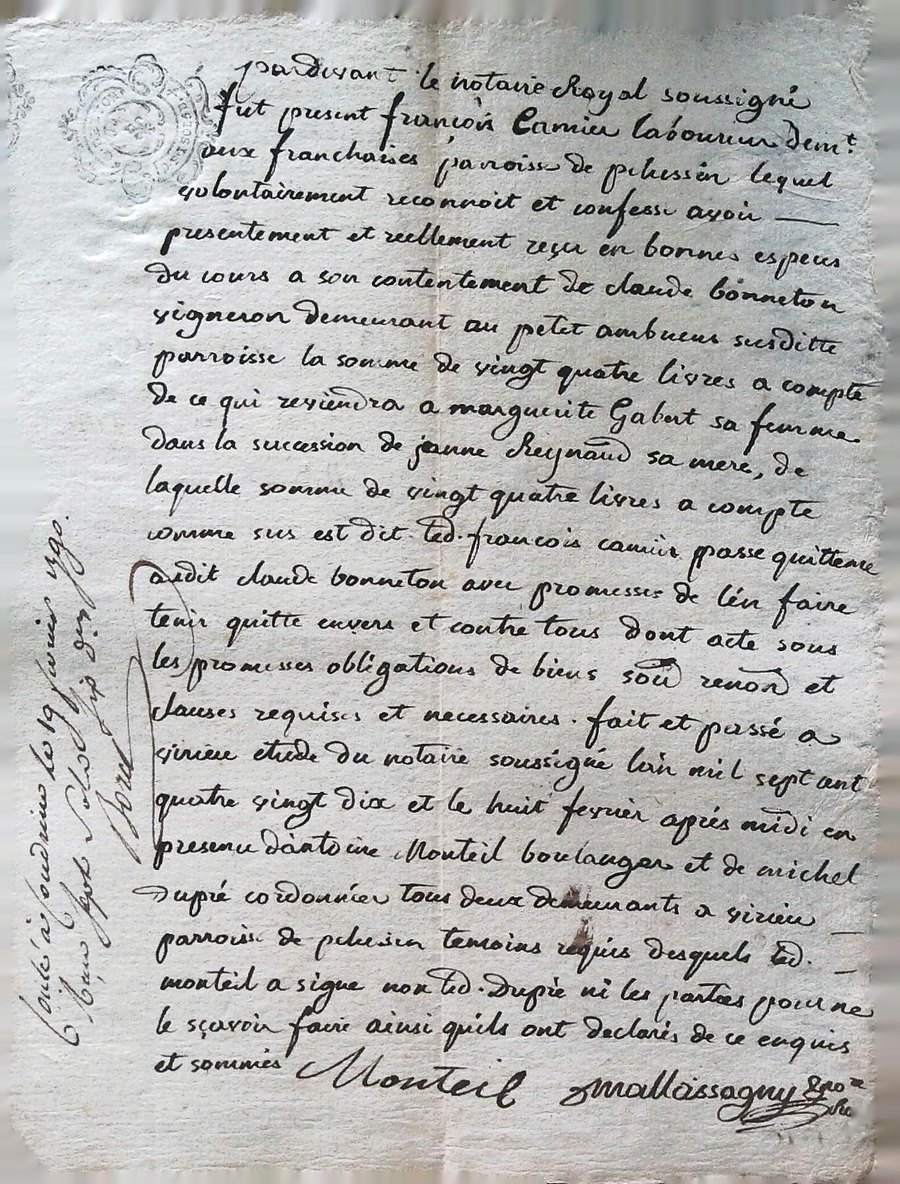 pardevant le notaire Royal soussigné
fut present françois Camier laboureur dem.t
aux franchaises parroisse de pelussin lequel
volontairement reconnoit et confesse avoir
presentement et reellement reçu en bonnes especes
du cours a son contentement de claude bonneton
vigneron demeurant au petit ambueus susditte
parroisse la somme de vingt quatre livres a compte
de ce qui reviendra a marguerite Gabert sa femme
dans la succession de jeanne Reynaud sa mere, de
laquelle somme de vingt quatre livres a compte
comme sus est dit led. françois camier passe quittence
audit claude bonneton avec promesse de l'en faire
tenir quitte envers et contre tous dont acte sous
les promesses obligations de biens soum renon et
clauses requises et necessaires. fait et passé a
virieu etude du notaire soussigné l'an mil sept cent
quatre vingt dix et le huit fevrier aprés midi en
presence d'antoine Monteil boulanger et de michel
dupré cordonnier tous deux demeurants a virieu
parroisse de pelussin temoins requis desquels led.
monteil a signe non led. Dupré ni les parties pour ne
le sçavoir faire ainsi qu'ils ont declarés de ce enquis
et sommés Monteil Mallassagny
le 19 fevrier 1790.
Reçu sept sols six den
Borel